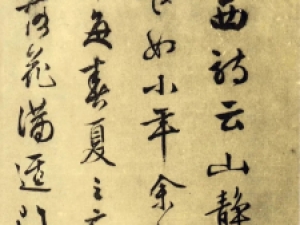 西詩云山靜
如小年余
每春夏之交
落花滿逕門